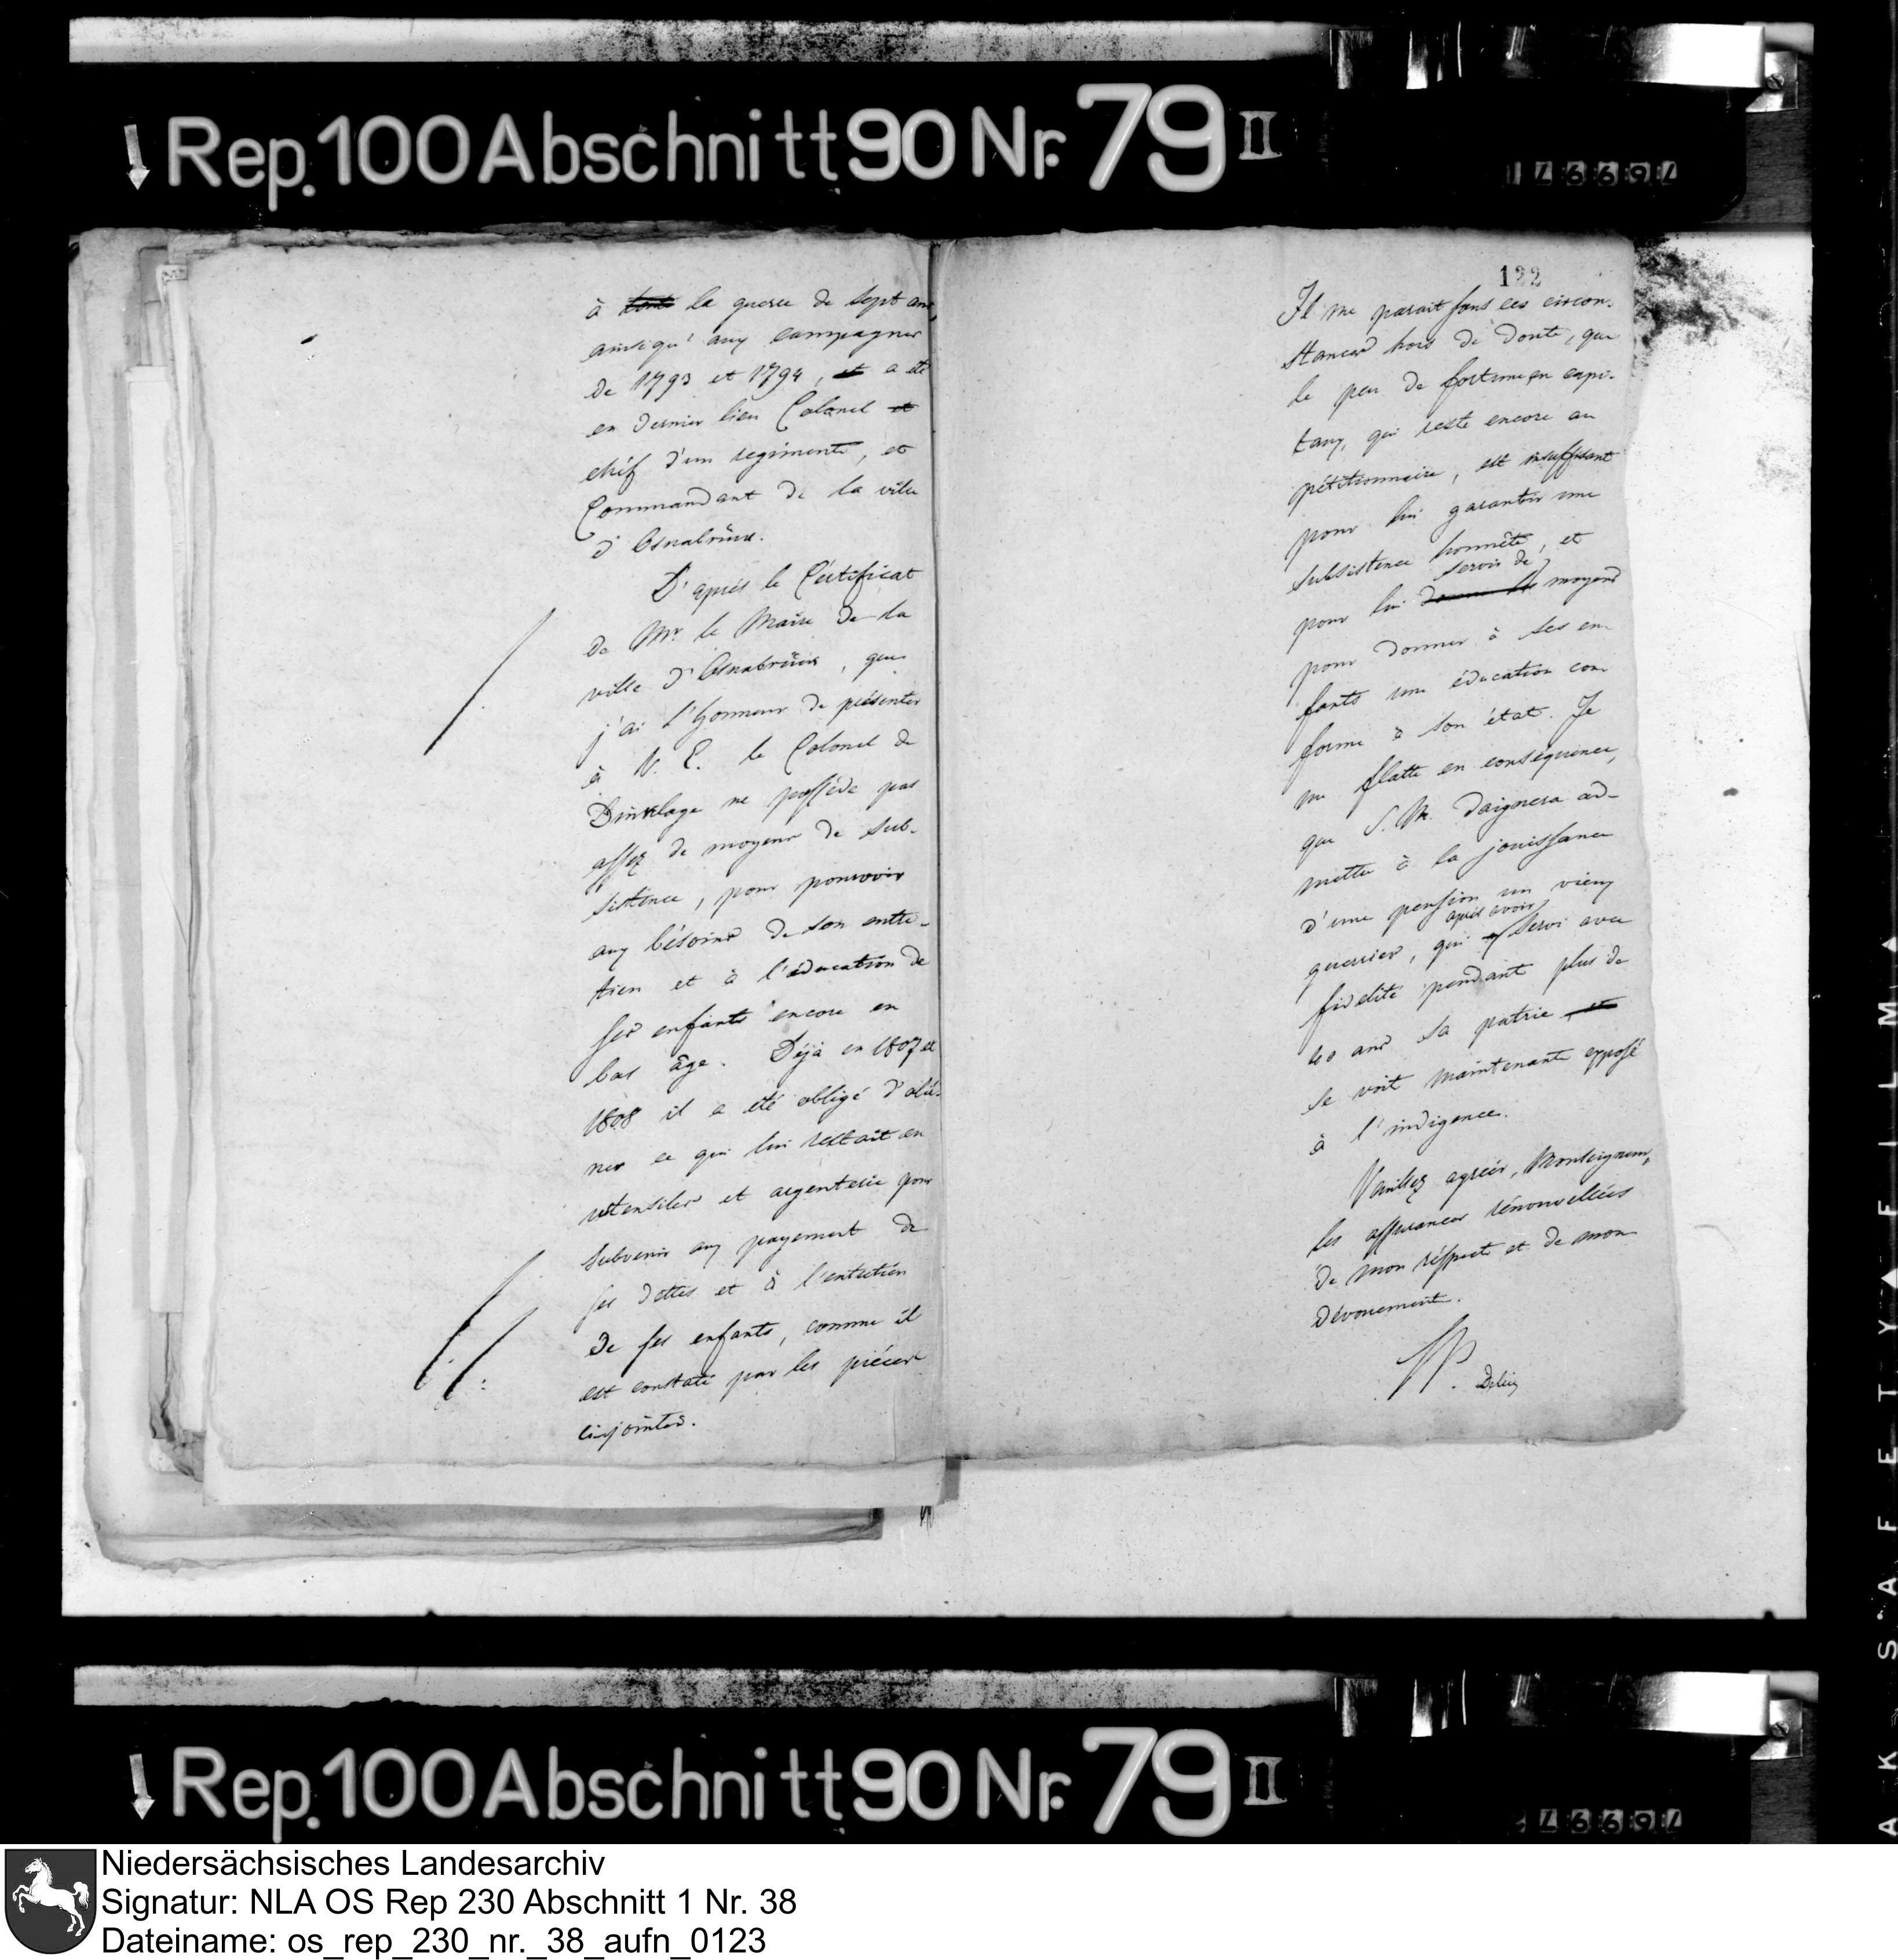 Rep. 100 Abschnitt 90 Nr. 79 II
à toute la guerre de sept ans,
ainsiqu' aux campagnes
de 1793 et 1794, et a été
en dernier lieu Colonel et
chéf d'un regiments, et
Commandant de la ville
d'Osnabrück.
D'aprés le Certificat
de Mr. le Maire de la
ville d'Osnabrück, que
j'ai l'honneur de présenter
à V. E. le Colonel de
Dincklage ne possède pas
assez de moyens de sub-
sistence, pour pourvoir
aux bésoins de son entre-
tien et à l'éducation de
ses enfants encore en
bas âge. Déjà en 1807 et
1808 il a été obligé d'alié-
ner ce qui lui restait en
ustensiles et argenterie pour
subvenir aux payement de
ses dettes et à l'entretien
de ses enfants, comme il
est constaté par les piéces
ci-jointes.
122
Il me parait sous ces circon-
stances hors de doute, que
le peu de fortune en capi-
taux, qui reste encore au
pétitionnaire, est insuffisant
pour lui garantir une
subsistence honnête, et
servir de
pour lui moyens
pour donner à ses en-
fants une éducation con-
forme à son état. Je
me flatte en conséquence,
que S. M. daignera ad-
mettre à la jouissance
d'une pension un vieux
après avoir
guerrier, qui a servi avec
fidelité pendant plus de
40 ans sa patrie et
se voit maintenant exposé
à l'indigence.
Veuillez agréer, Monseigneur,
les assurances rénouvellées
de mon réspect et de mon
dévouement.
Rep. 100 Abschnitt 90 Nr. 79 II
Niedersächsisches Landesarchiv
Signatur: NLA OS Rep 230 Abschnitt 1 Nr. 38
Dateiname: os_rep_230_nr._38_aufn_0123
AK SAFETY FILM